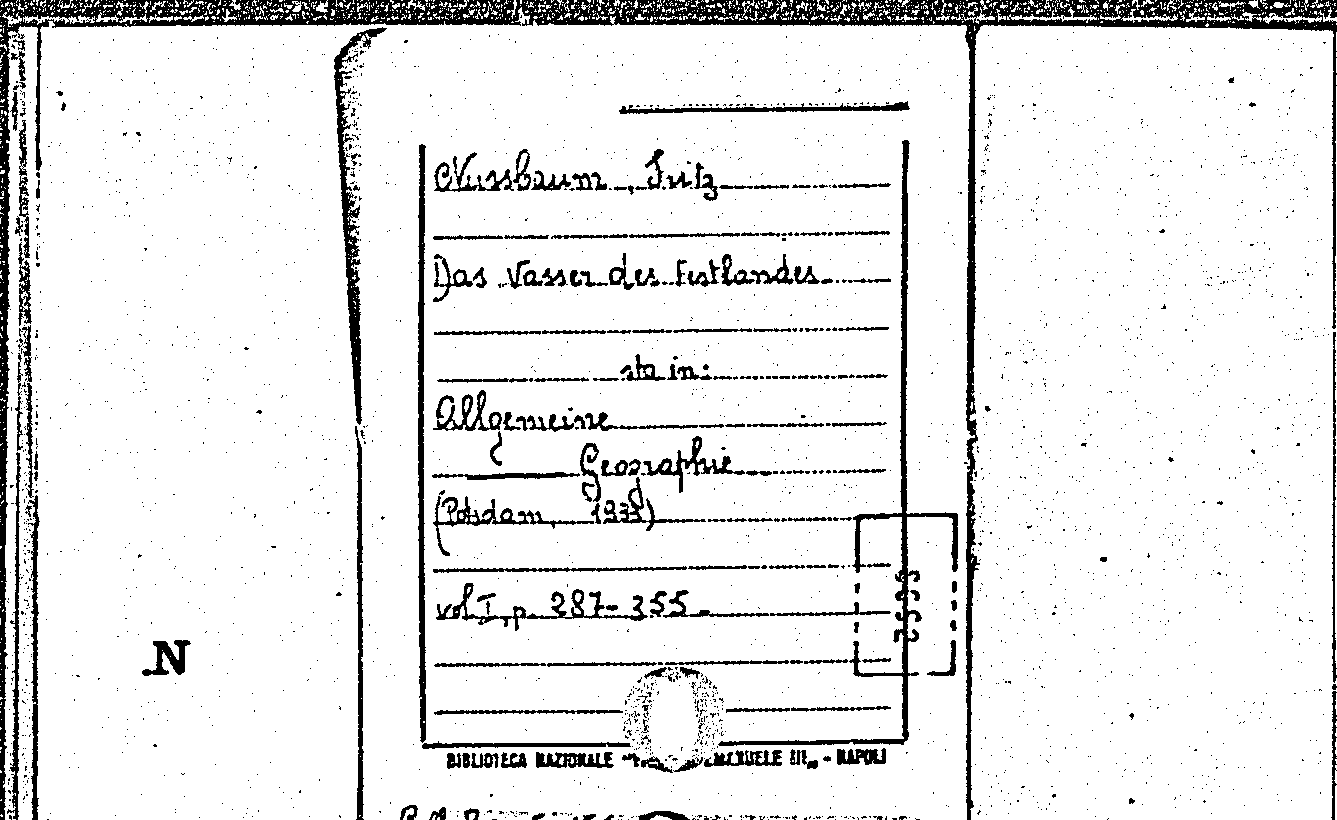 Nussbaum, Fritz
Das Vasser des Festlandes.
sta in:
Allgemeine
Geographie
(Potsdam, 1933)
vol. I, p. 287-355.
.N
BIBLIOTECA NAZIONALE EMANUELE III„ - NAPOLI